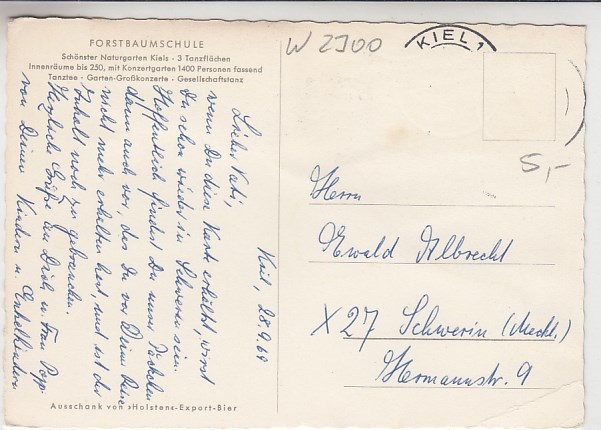 FORSTBAUMSCHULE
Schönster Naturgarten Kiels - 3 Tanzflächen
Innenräume bis 250, mit Konzertgarten 1400 Personen fassend
Tanztee - Garten-Großkonzerte - Gesellschaftstanz
Kiel, 28.9.69
Lieber Vati,
wenn Du diese Karte erhältst, wirst
Du schon wieder in Schwerin sein.
Hoffentlich findest Du unser Päckchen
dann auch vor, das Du vor Deiner Reise
nicht mehr erhalten hast, und ist der
Inhalt noch zu gebrauchen.
Herzliche Grüße an Dich u. Frau
von Deinen Kindern u. Enkelkindern
Ausschank von »Holsten«-Export-Bier
W 2300
KIEL 1
5,-
Herrn
Ewald Albrecht
X27 Schwerin (Meckl.)
Hermannstr. 9